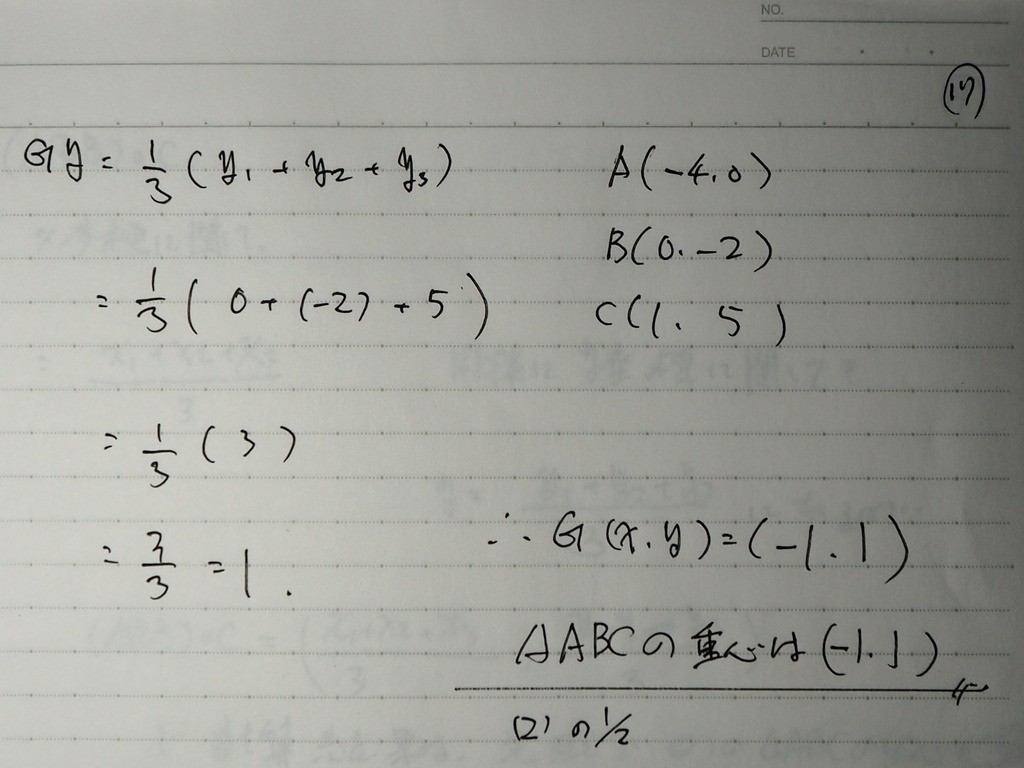 NO.
DATE
(17)
Gy = 1/3 (y₁ + y₂ + y₃)
= 1/3 ( 0 + (-2) + 5 )
= 1/3 ( 3 )
= 3/3 = 1.
A(-4, 0)
B(0. -2)
C(1. 5)
∴ G(x. y) = (-1. 1)
△ABCの重心は(-1. 1)
(2)の1/2